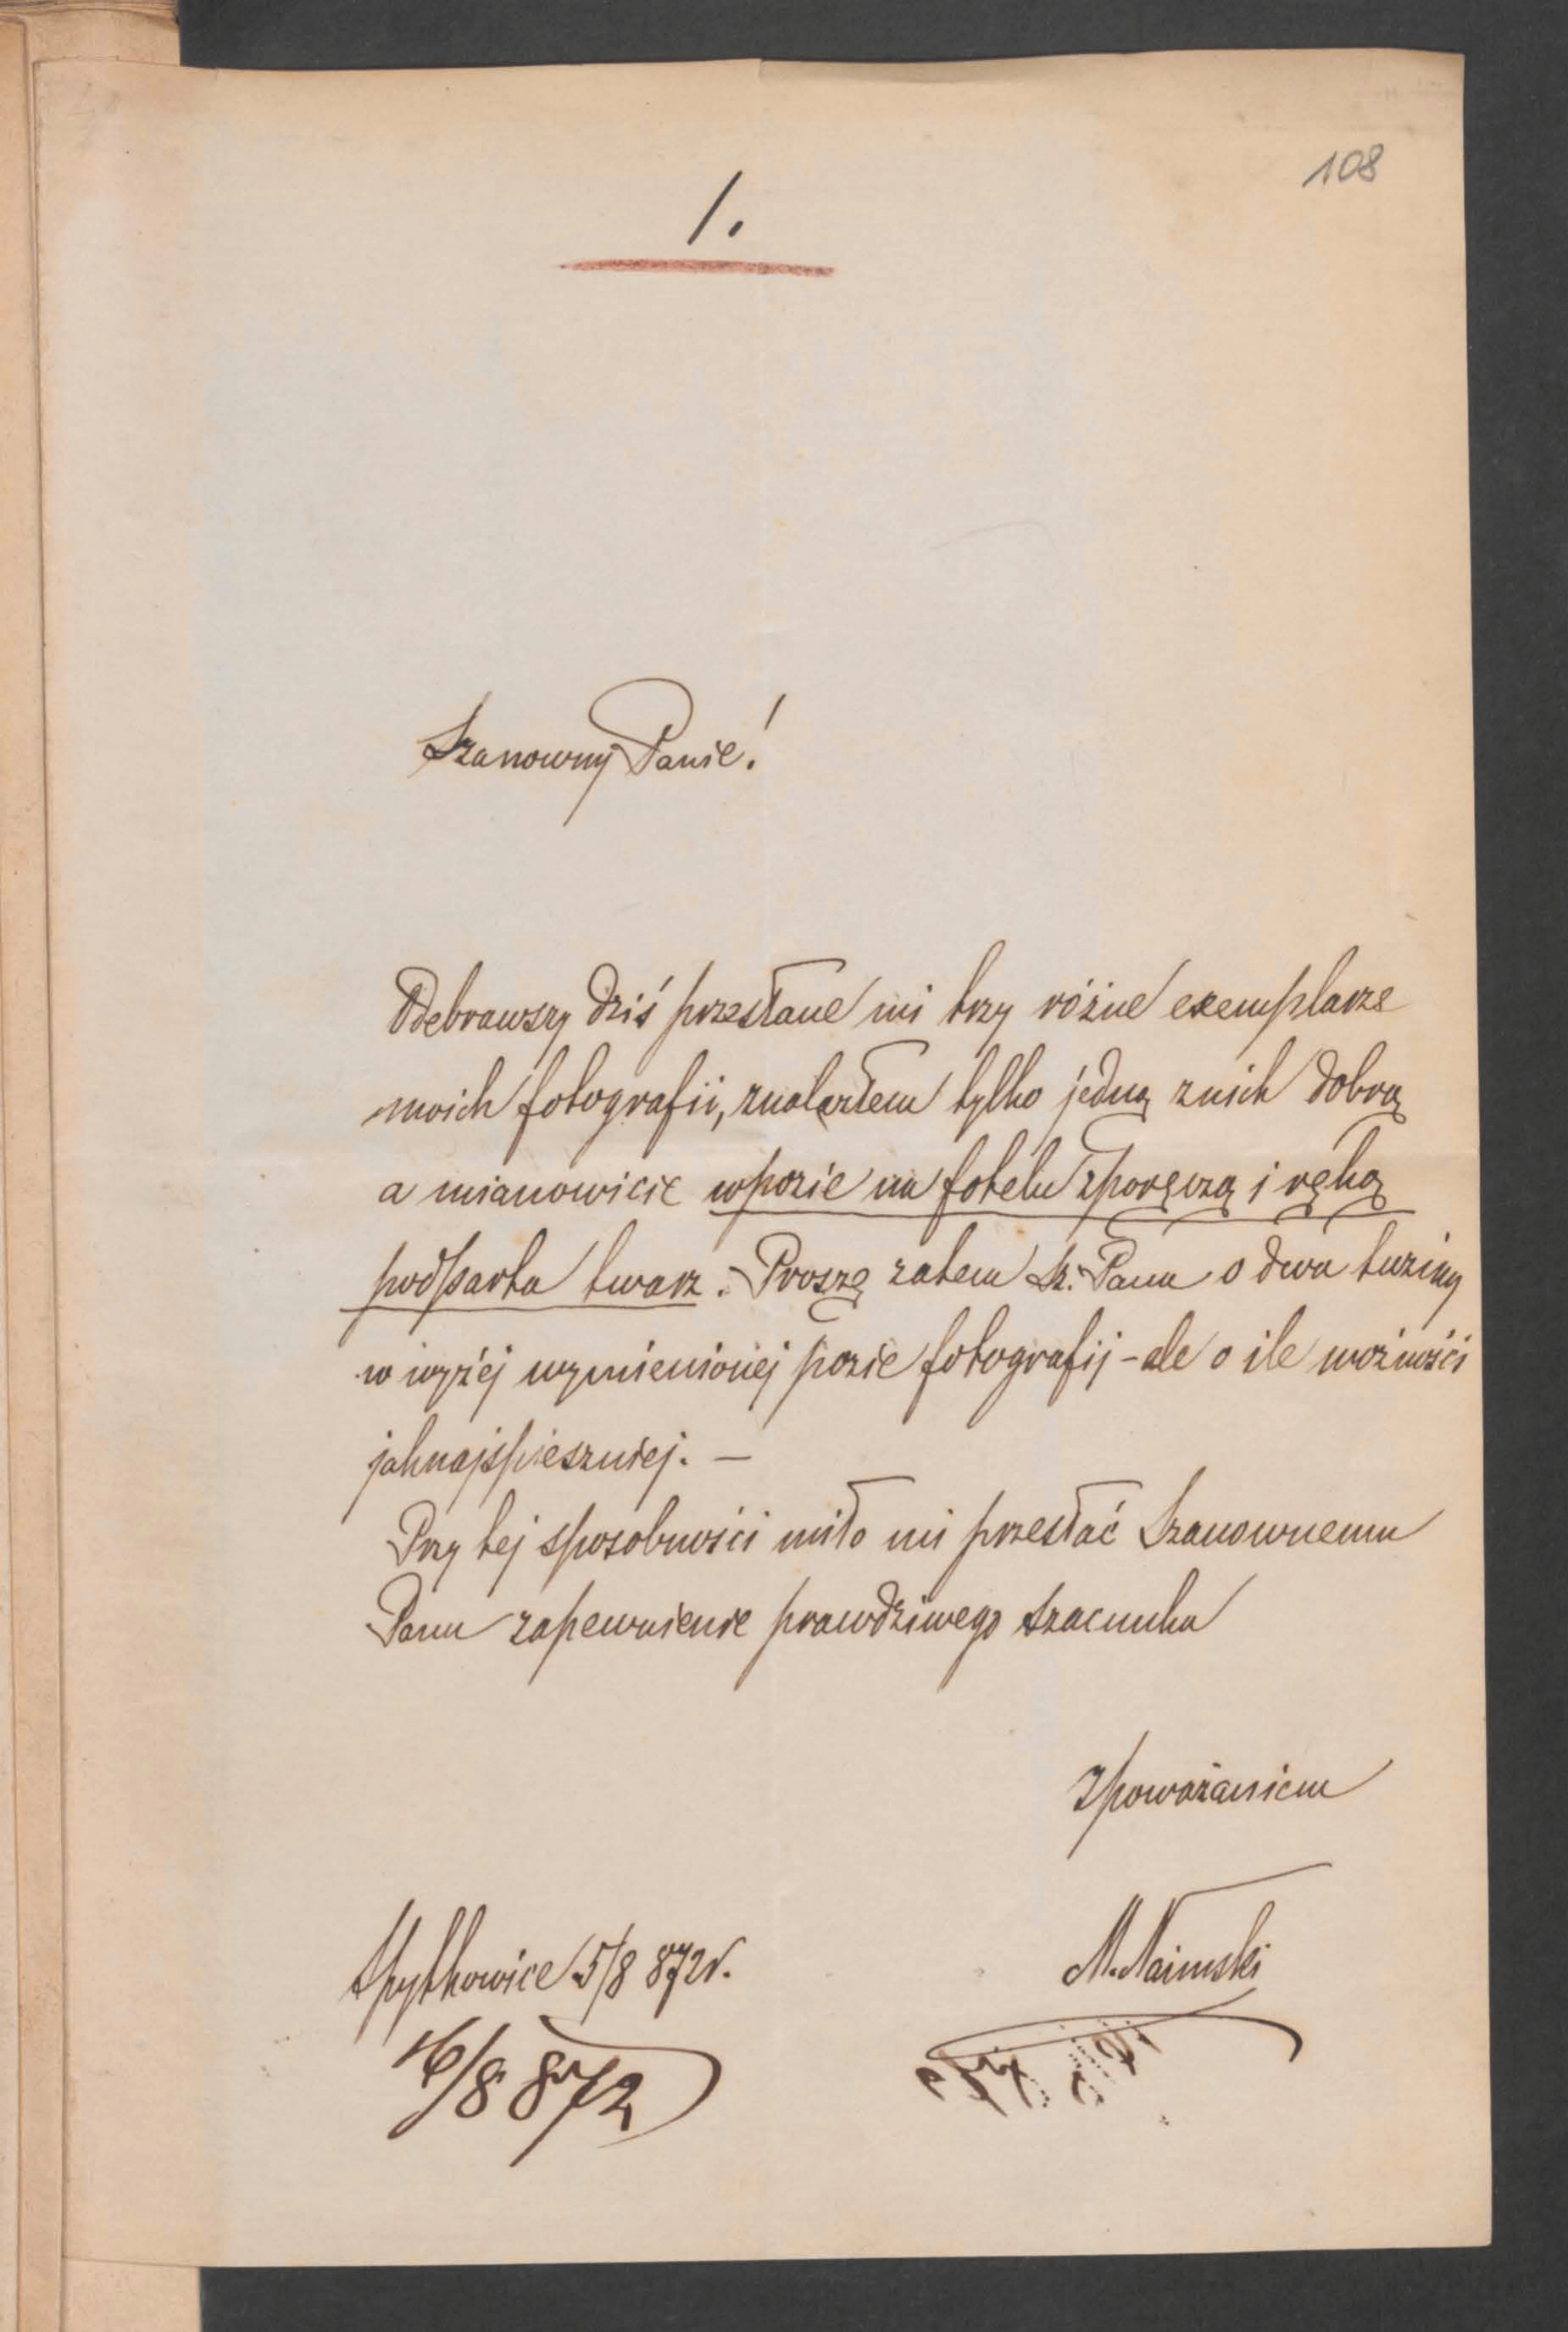 108
1.
Szanowny Panie!
Odebrawszy dziś przesłane mi trzy różne exemplarze
moich fotografii, znalazłem tylko jedną znich dobrą
a mianowicie wpozie na fotelu zporęczą i ręką
podparta twarz. Proszę zatem Sz. Pana o dwa tuziny
w wyżej wymienionej pozie fotografij - ale o ile możności
jaknajspieszniej. —
Przy tej sposobności miło mi przesłać Szanownemu
Panu zapewnienie prawdziwego szacunku
Zpoważaniem
Spytkowice 5/8 872r.
M. Naimski
16/8 872